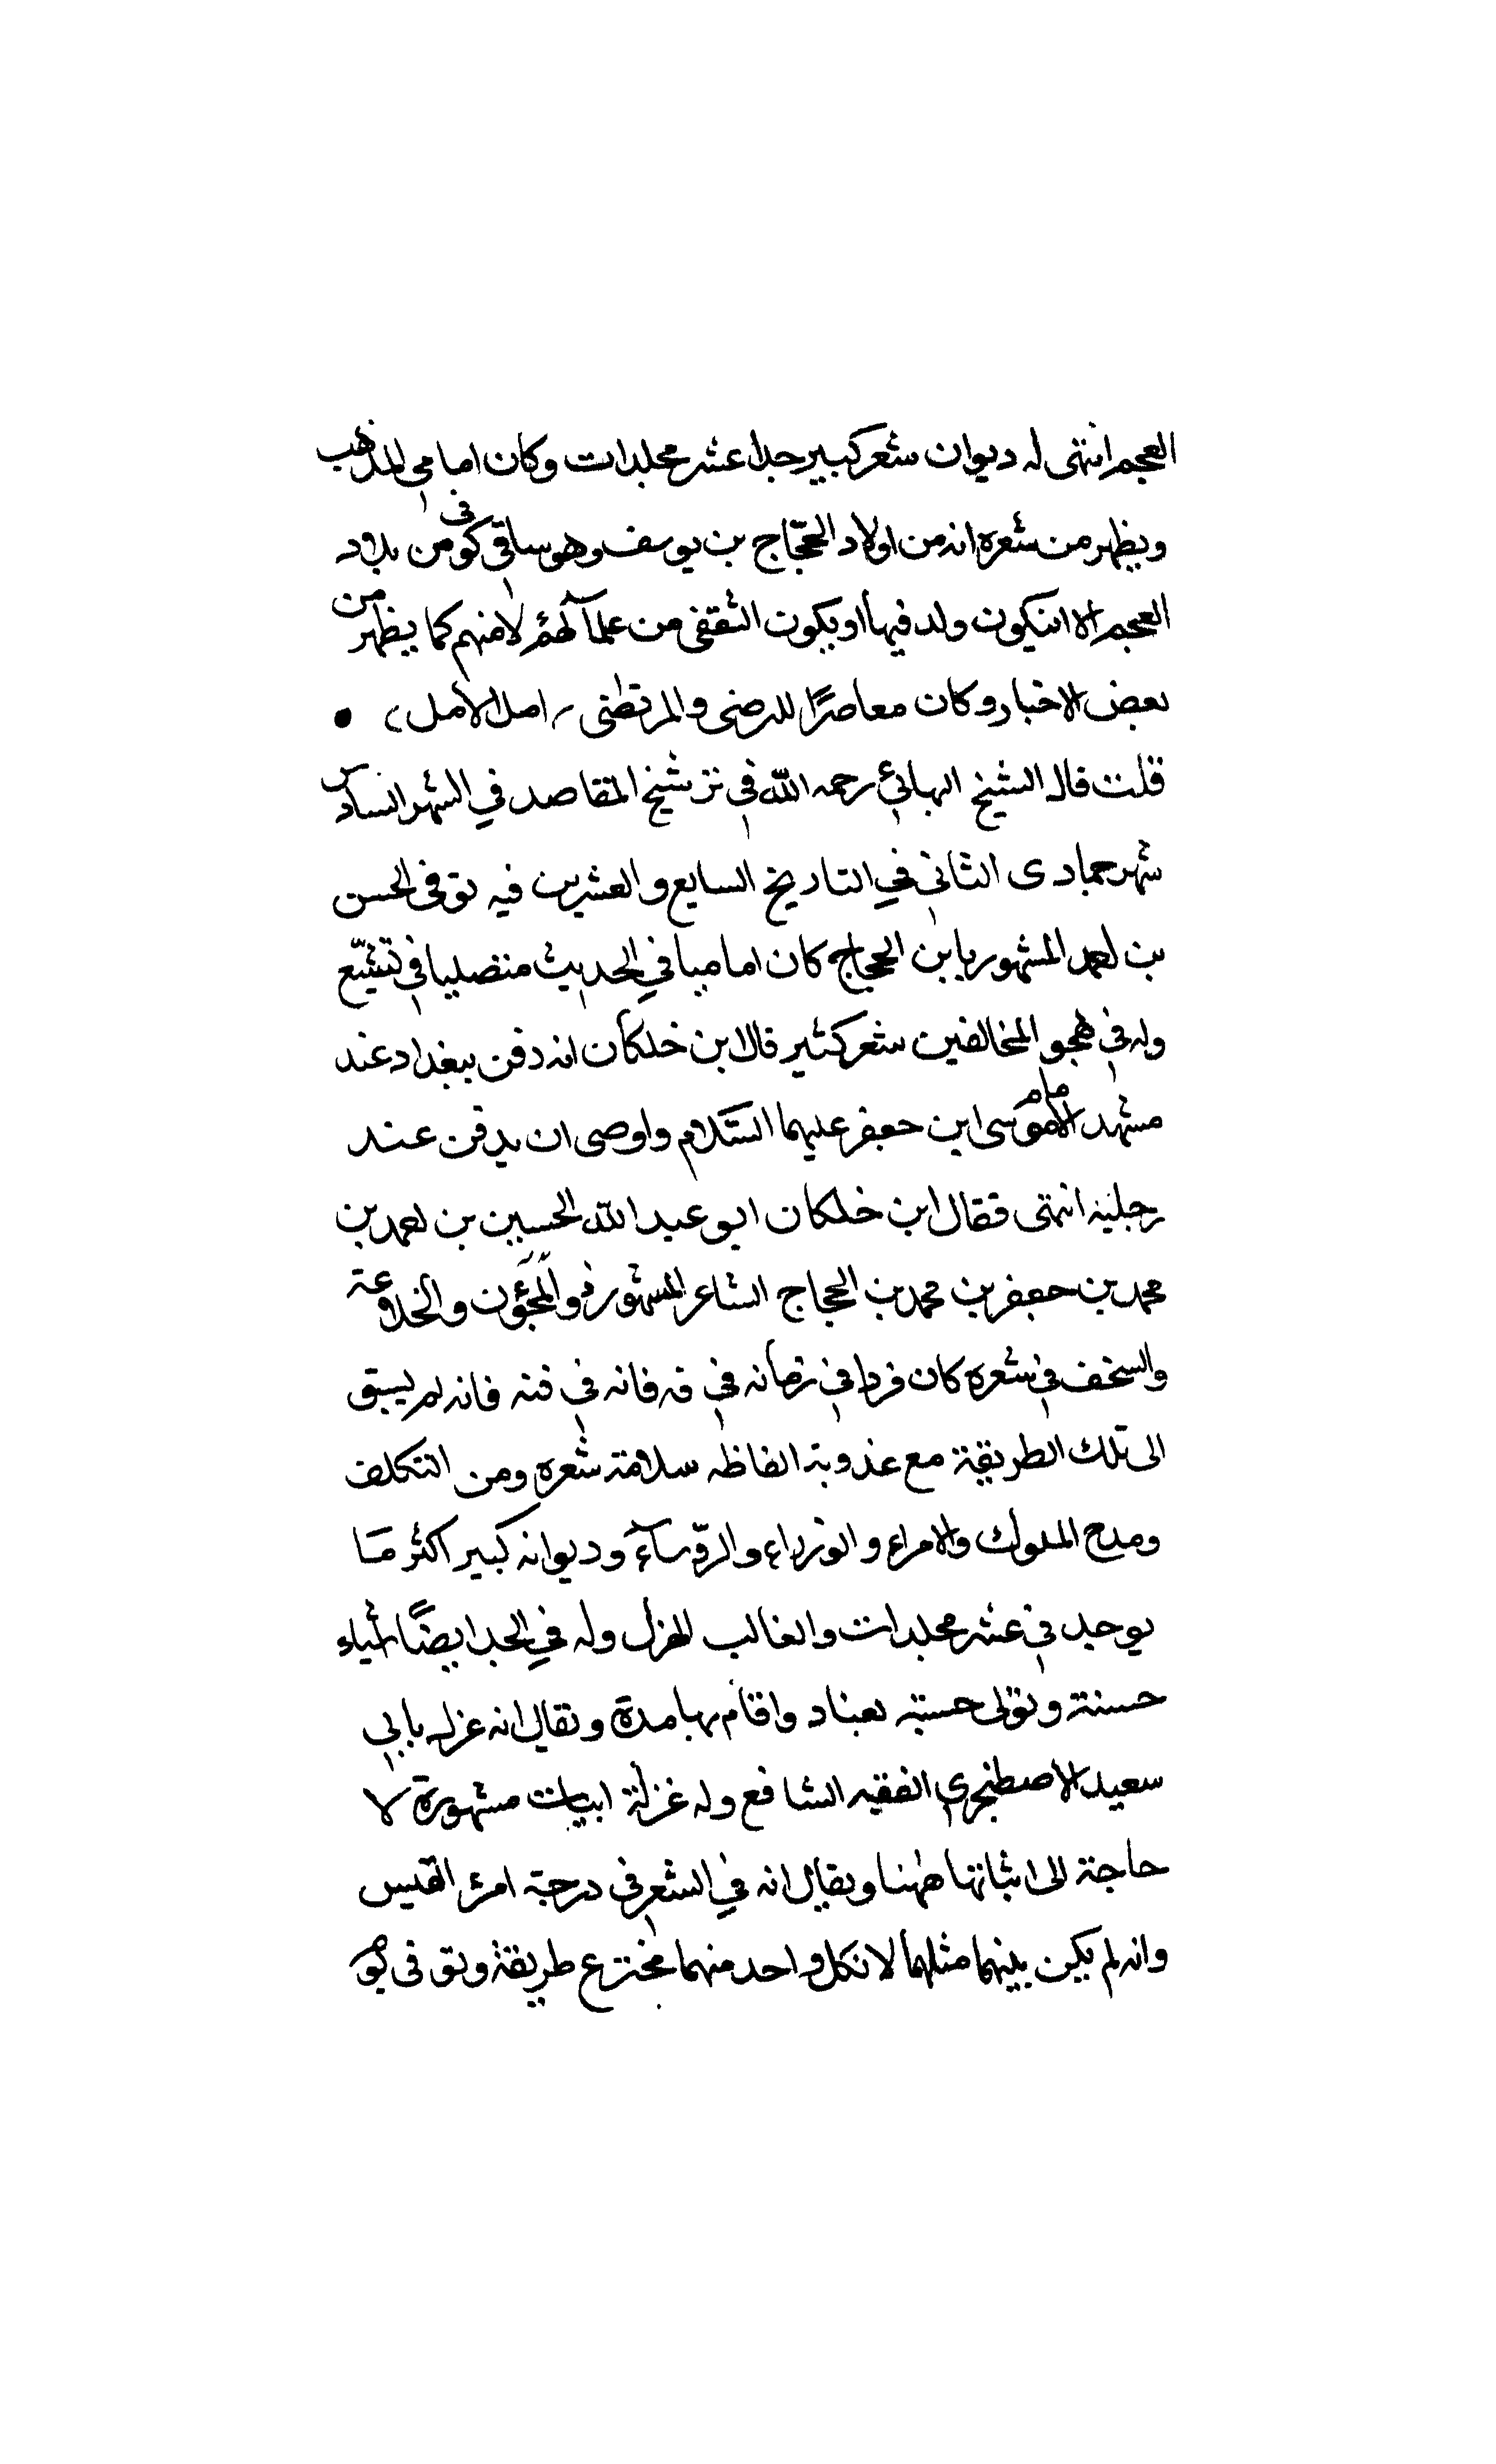 العجم انتهى له ديوان شعر كبير جدا عشر مجلدات وكان امامي المذهب
ويظهر من شعره انه من اولاد الحجّاج بن يوسف وهو ساقى كوفى من بلاد
العجم الا انيكون ولد فيها او يكون الثقفى من علمآئهم لا منهم كما يظهر من
بعض الاخبار وكان معاصرًا للرضى والمرتضى / امل الامل /
قلت قال الشيخ البهائي رحمه اللّه في شيخ المقاصد في الشهر السادس
شهر جمادى الثاني في التاريخ السابع والعشرين فيه توفى الحسن
بن احمد المشهور بابن الحجاج كان اماميا في الحديث متصلبا في تشيّع
وله في هجو المخالفين شعر كثير قال ابن خلكان انه دفن ببغداد عند
مشهد الامام موسى ابن جعفر عليهما السّلام واوصى ان يدفن عند
رجليه انتهى فقال ابن خلكان ابو عبد اللّه الحسين بن احمد بن
محمد بن جعفر بن محمد بن الحجاج الشاعر المشهور ذو المجون والخلاعة
والسخف في شعره كان فردا في زمانه في فه فانه في فنه فانه لم يسبق
الى تلك الطريقة مع عذوبة الفاظه سلامة شعره ومن التكلف
ومدح الملوك والامراء والوزراء والرّوسآء وديوانه كبير اكثر مَا
يوجد في عشر مجلدات والغالب الهزل وله في الجد ايضًا اشياء
حسنة وتولى حسبته بغداد واقام بها مدة ويقال انه عزله بابي
سعيد الاصطخري الفقيه الشافع وله غزلة ابيات مشهورة لا
حاجة الى اثباتها ههنا ويقال انه في الشعر في درجة امرئ القيس
وانه لم يكن بينهما مثلهما لانكل واحد منهما مخترع طريقة وتوفى يوم